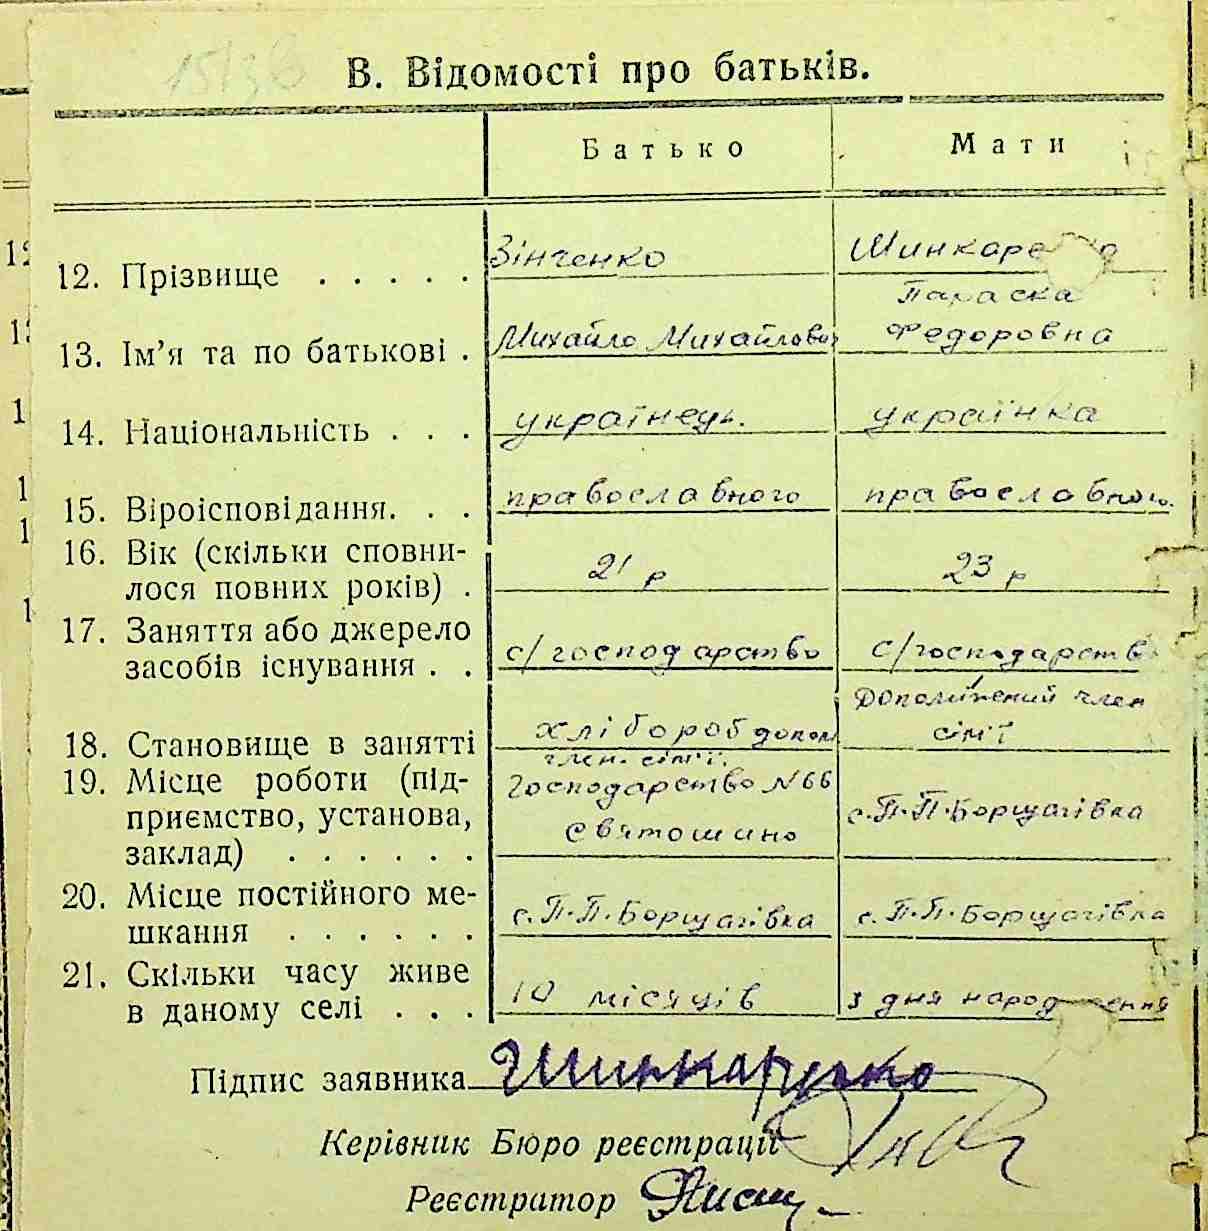 В. Відомості про батьків.
Батько Мати
12. Прізвище . . . . . Зінченко
Параска
13. Ім'я та по батькові . Михайло Михайлович Федоровна
14. Національність . . . українець. українка
15. Віроісповідання. . . православного православного.
16. Вік (скільки сповни-
лося повних років) . 21 р 23 р
17. Заняття або джерело
засобів існування . . с/господарство с/господарств
Допоміжений член
18. Становище в занятті хлібороб допом сім'ї
член. сім'ї.
19. Місце роботи (під- Господарство №66
приємство, установа, Святошино с.П.П.Борщагівка
заклад) . . . . . .
20. Місце постійного ме-
шкання . . . . . . с.П.П.Борщагівка с.П.П.Борщагівка
21. Скільки часу живе
в даному селі . . . 10 місяців з дня народження
Підпис заявника Шинкаренко
Керівник Бюро реєстрації
Реєстратор